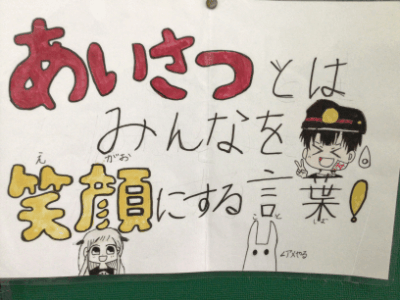 あいさつとは
みんなを
笑顔にする言葉!
えがお